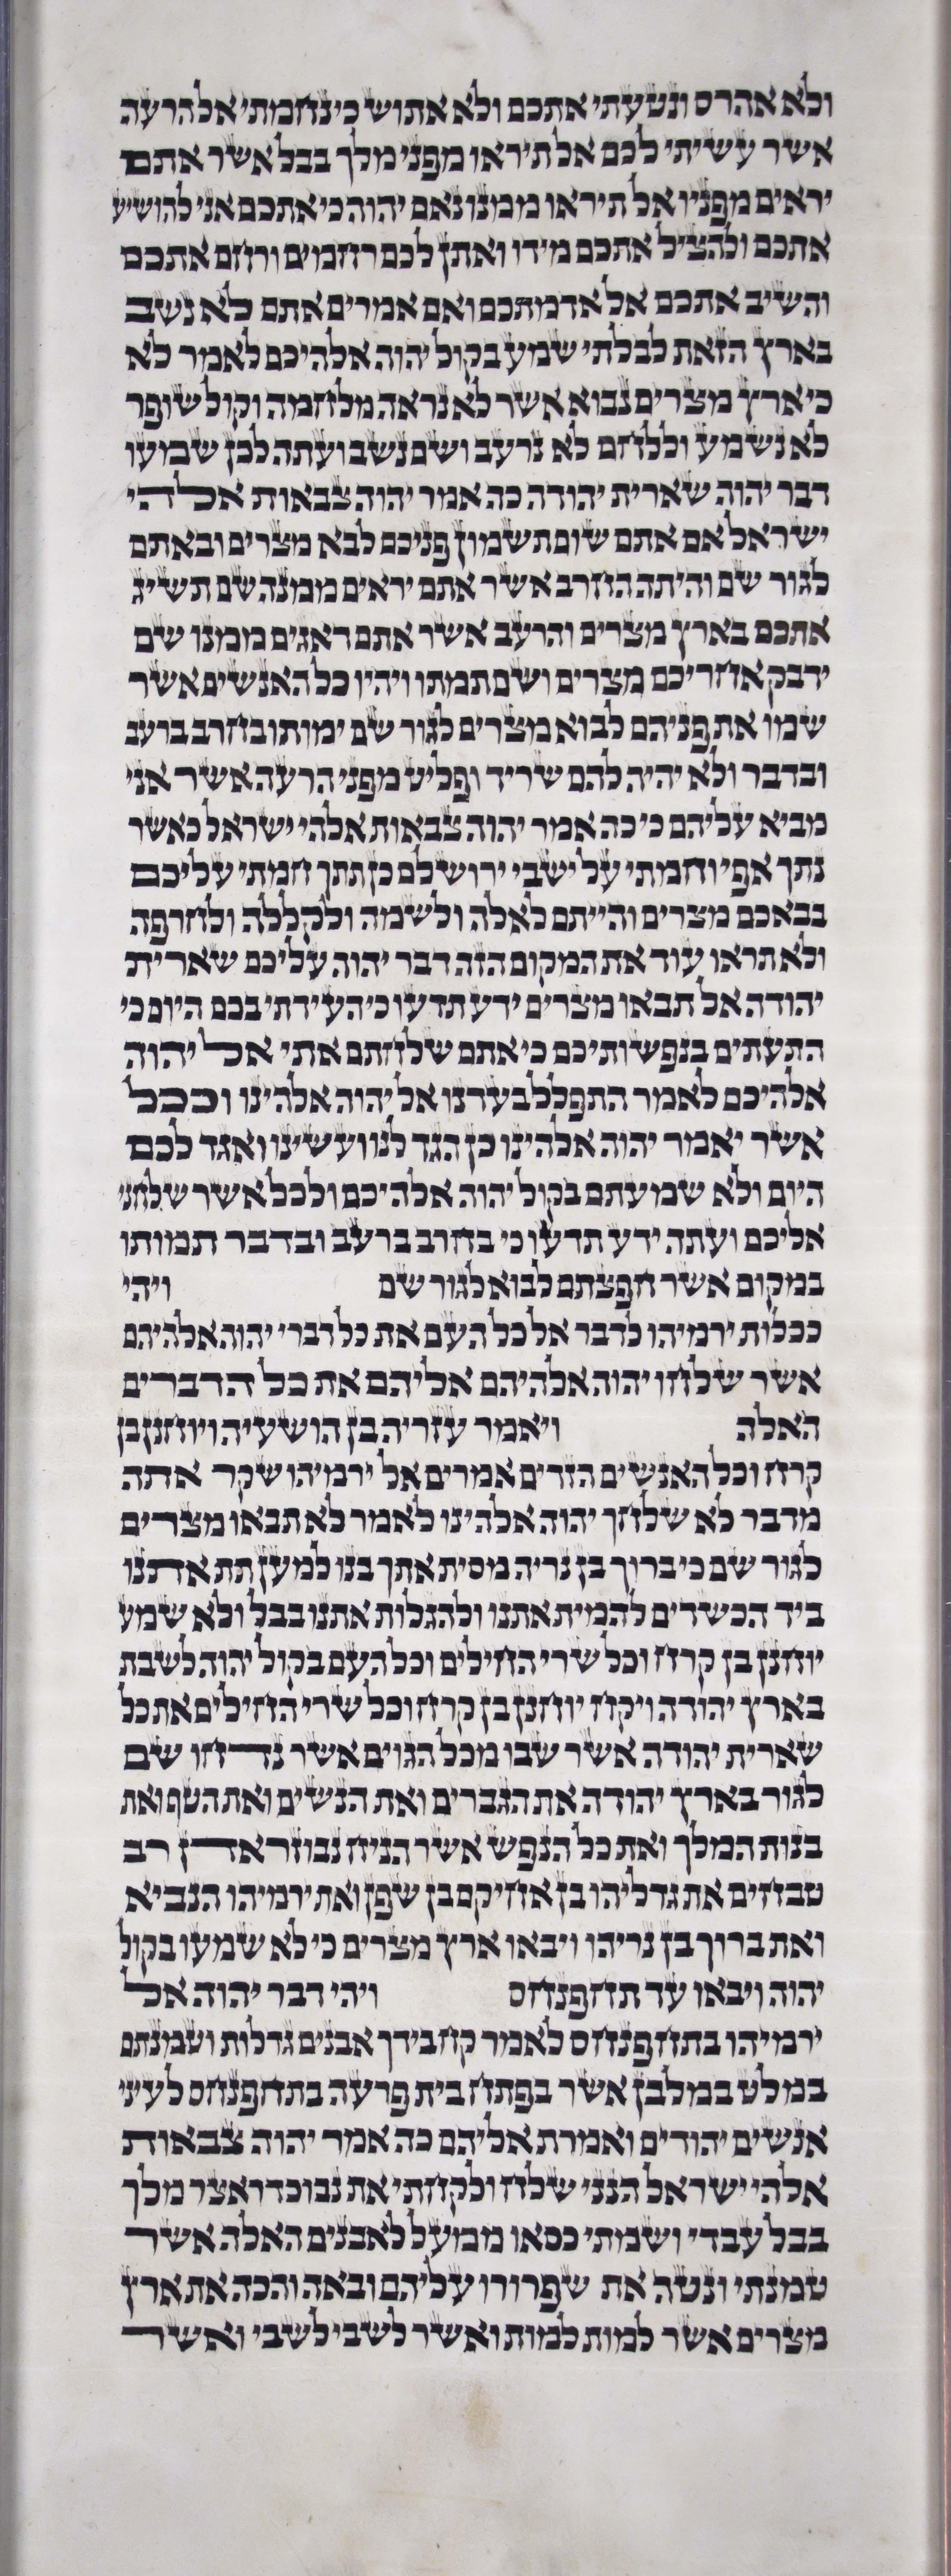 ולא אהרס ונטעתי אתכם ולא אתוש כי נחמתי אל הרעה
אשר עשיתי לכם אל תיראו מפני מלך בבל אשר אתם
יראים מפניו אל תיראו ממנו נאם יהוה כי אתכם אני להושיע
אתכם ולהציל אתכם מידו ואתן לכם רחמים ורחם אתכם
והשיב אתכם אל אדמתכם ואם אמרים אתם לא נשב
בארץ הזאת לבלתי שמע בקול יהוה אלהיכם לאמר לא
כי ארץ מצרים נבוא אשר לא נראה מלחמה וקול שופר
לא נשמע וללחם לא נרעב ושם נשב ועתה לכן שמעו
דבר יהוה שארית יהודה כה אמר יהוה צבאות אלהי
ישראל אם אתם שום תשמון פניכם לבא מצרים ובאתם
לגור שם והיתה החרב אשר אתם יראים ממנה שם תשיג
אתכם בארץ מצרים והרעב אשר אתם דאגים ממנו שם
ידבק אחריכם מצרים ושם תמתו ויהיו כל האנשים אשר
שמו את פניהם לבוא מצרים לגור שם ימותו בחרב ברעב
ובדבר ולא יהיה להם שריד ופליט מפני הרעה אשר אני
מביא עליהם כי כה אמר יהוה צבאות אלהי ישראל כאשר
נתך אפי וחמתי על ישבי ירושלם כן תתך חמתי עליכם
בבאכם מצרים והייתם לאלה ולשמה ולקללה ולחרפה
ולא תראו עוד את המקום הזה דבר יהוה עליכם שארית
יהודה אל תבאו מצרים ידע תדעו כי העידתי בכם היום כי
התעתים בנפשותיכם כי אתם שלחתם אתי אל יהוה
אלהיכם לאמר התפלל בעדנו אל יהוה אלהינו וככל
אשר יאמר יהוה אלהינו כן הגד לנו ועשינו ואגד לכם
היום ולא שמעתם בקול יהוה אלהיכם ולכל אשר שלחני
אליכם ועתה ידע תדעו כי בחרב ברעב ובדבר תמותו
במקום אשר חפצתם לבוא לגור שם ויהי
ככלות ירמיהו לדבר אל כל העם את כל דברי יהוה אלהיהם
אשר שלחו יהוה אלהיהם אליהם את כל הדברים
האלה ויאמר עזריה בן הושעיה ויוחנן בן
קרח וכל האנשים הזדים אמרים אל ירמיהו שקר אתה
מדבר לא שלחך יהוה אלהינו לאמר לא תבאו מצרים
לגור שם כי ברוך בן נריה מסית אתך בנו למען תת אתנו
ביד הכשדים להמית אתנו ולהגלות אתנו בבל ולא שמע
יוחנן בן קרח וכל שרי החילים וכל העם בקול יהוה לשבת
בארץ יהודה ויקח יוחנן בן קרח וכל שרי החילים את כל
שארית יהודה אשר שבו מכל הגוים אשר נדחו שם
לגור בארץ יהודה את הגברים ואת הנשים ואת הטף ואת
בנות המלך ואת כל הנפש אשר הניח נבוזראדן רב
טבחים את גדליהו בן אחיקם בן שפן ואת ירמיהו הנביא
ואת ברוך בן נריהו ויבאו ארץ מצרים כי לא שמעו בקול
יהוה ויבאו עד תחפנחס ויהי דבר יהוה אל
ירמיהו בתחפנחס לאמר קח בידך אבנים גדלות וטמנתם
במלט במלבן אשר בפתח בית פרעה בתחפנחס לעיני
אנשים יהודים ואמרת אליהם כה אמר יהוה צבאות
אלהי ישראל הנני שלח ולקחתי את נבוכדראצר מלך
בבל עבדי ושמתי כסאו ממעל לאבנים האלה אשר
טמנתי ונטה את שפרורו עליהם ובאה והכה את ארץ
מצרים אשר למות למות ואשר לשבי לשבי ואשר